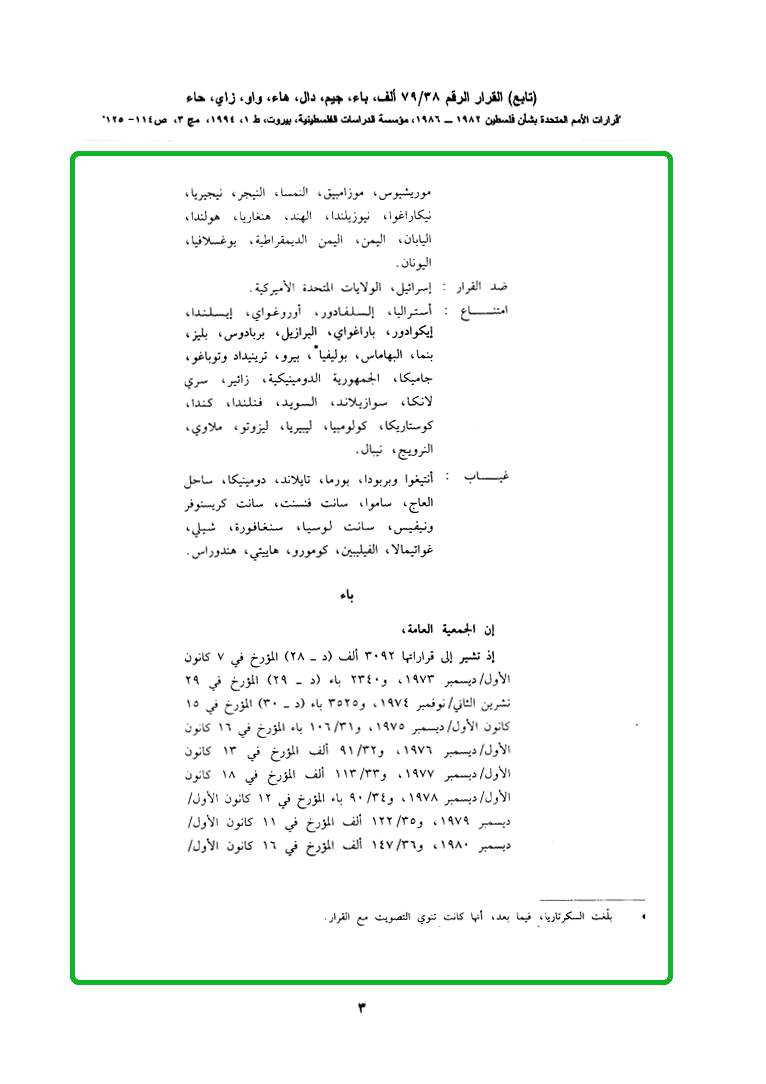 (تابع) القرار الرقم ٧٩/٣٨ ألف، باء، جيم، دال، هاء، واو، زاي، حاء
"قرارات الأمم المتحدة بشأن فلسطين ١٩٨٢ ــ ١٩٨٦، مؤسسة الدراسات الفلسطينية، بيروت، ط ١، ١٩٩٤، مج ٣، ص١١٤- ١٢٥"
موريشيوس، موزامبيق، النمسا، النيجر، نيجيريا،
نيكاراغوا، نيوزيلندا، الهند، هنغاريا، هولندا،
اليابان، اليمن، اليمن الديمقراطية، يوغسلافيا،
اليونان.
ضد القرار : إسرائيل، الولايات المتحدة الأميركية.
امتنـــــاع : أستراليا، إلسلفادور، أوروغواي، إيسلندا،
إيكوادور، باراغواي، البرازيل، بربادوس، بليز،
بنما، البهاماس، بوليفيا*، بيرو، ترينيداد وتوباغو،
جاميكا، الجمهورية الدومينيكية، زائير، سري
لانكا، سوازيلاند، السويد، فنلندا، كندا،
كوستاريكا، كولومبيا، ليبيريا، ليزوتو، ملاوي،
النرويج، نيبال.
غيـــــاب : أنتيغوا وبربودا، بورما، تايلاند، دومينيكا، ساحل
العاج، ساموا، سانت فنسنت، سانت كريستوفر
ونيفيس، سانت لوسيا، سنغافورة، شيلي،
غواتيمالا، الفيليبين، كومورو، هاييتي، هندوراس.
باء
إن الجمعية العامة،
إذ تشير إلى قراراتها ٣٠٩٢ ألف (د ــ ٢٨) المؤرخ في ٧ كانون
الأول/ديسمبر ١٩٧٣، و٢٣٤٠ باء (د ــ ٢٩) المؤرخ في ٢٩
تشرين الثاني/نوفمبر ١٩٧٤، و٣٥٢٥ باء (د ــ ٣٠) المؤرخ في ١٥
كانون الأول/ديسمبر ١٩٧٥، و١٠٦/٣١ باء المؤرخ في ١٦ كانون
الأول/ديسمبر ١٩٧٦، و٩١/٣٢ ألف المؤرخ في ١٣ كانون
الأول/ديسمبر ١٩٧٧، و١١٣/٣٣ ألف المؤرخ في ١٨ كانون
الأول/ديسمبر ١٩٧٨، و٩٠/٣٤ باء المؤرخ في ١٢ كانون الأول/
ديسمبر ١٩٧٩، و١٢٢/٣٥ ألف المؤرخ في ١١ كانون الأول/
ديسمبر ١٩٨٠، و١٤٧/٣٦ ألف المؤرخ في ١٦ كانون الأول/
* بلّغت السكرتاريا، فيما بعد، أنها كانت تنوي التصويت مع القرار.
٣